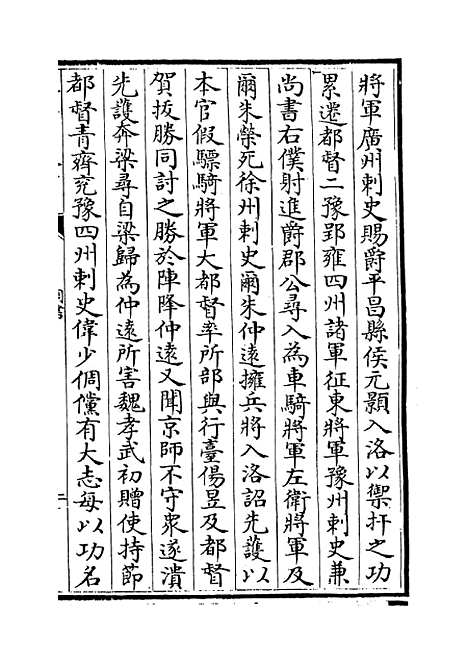 將軍廣州刺史賜爵平昌縣侯元顥入洛以禦扞之功
累遷都督二豫郢雍四州諸軍征東將軍豫州刺史兼
尚書右僕射進爵郡公尋入為車騎將軍左衛將軍及
爾朱榮死徐州刺史爾朱仲遠擁兵將入洛詔先護以
本官假驃騎將軍大都督率所部與行臺傷昱及都督
賀抜勝同討之勝於陣降仲遠又聞京師不守衆遂潰
先護奔梁尋自梁歸為仲遠所害魏孝武初贈使持節
都督青齊兖豫四州刺史偉少倜儻有大志每以功名